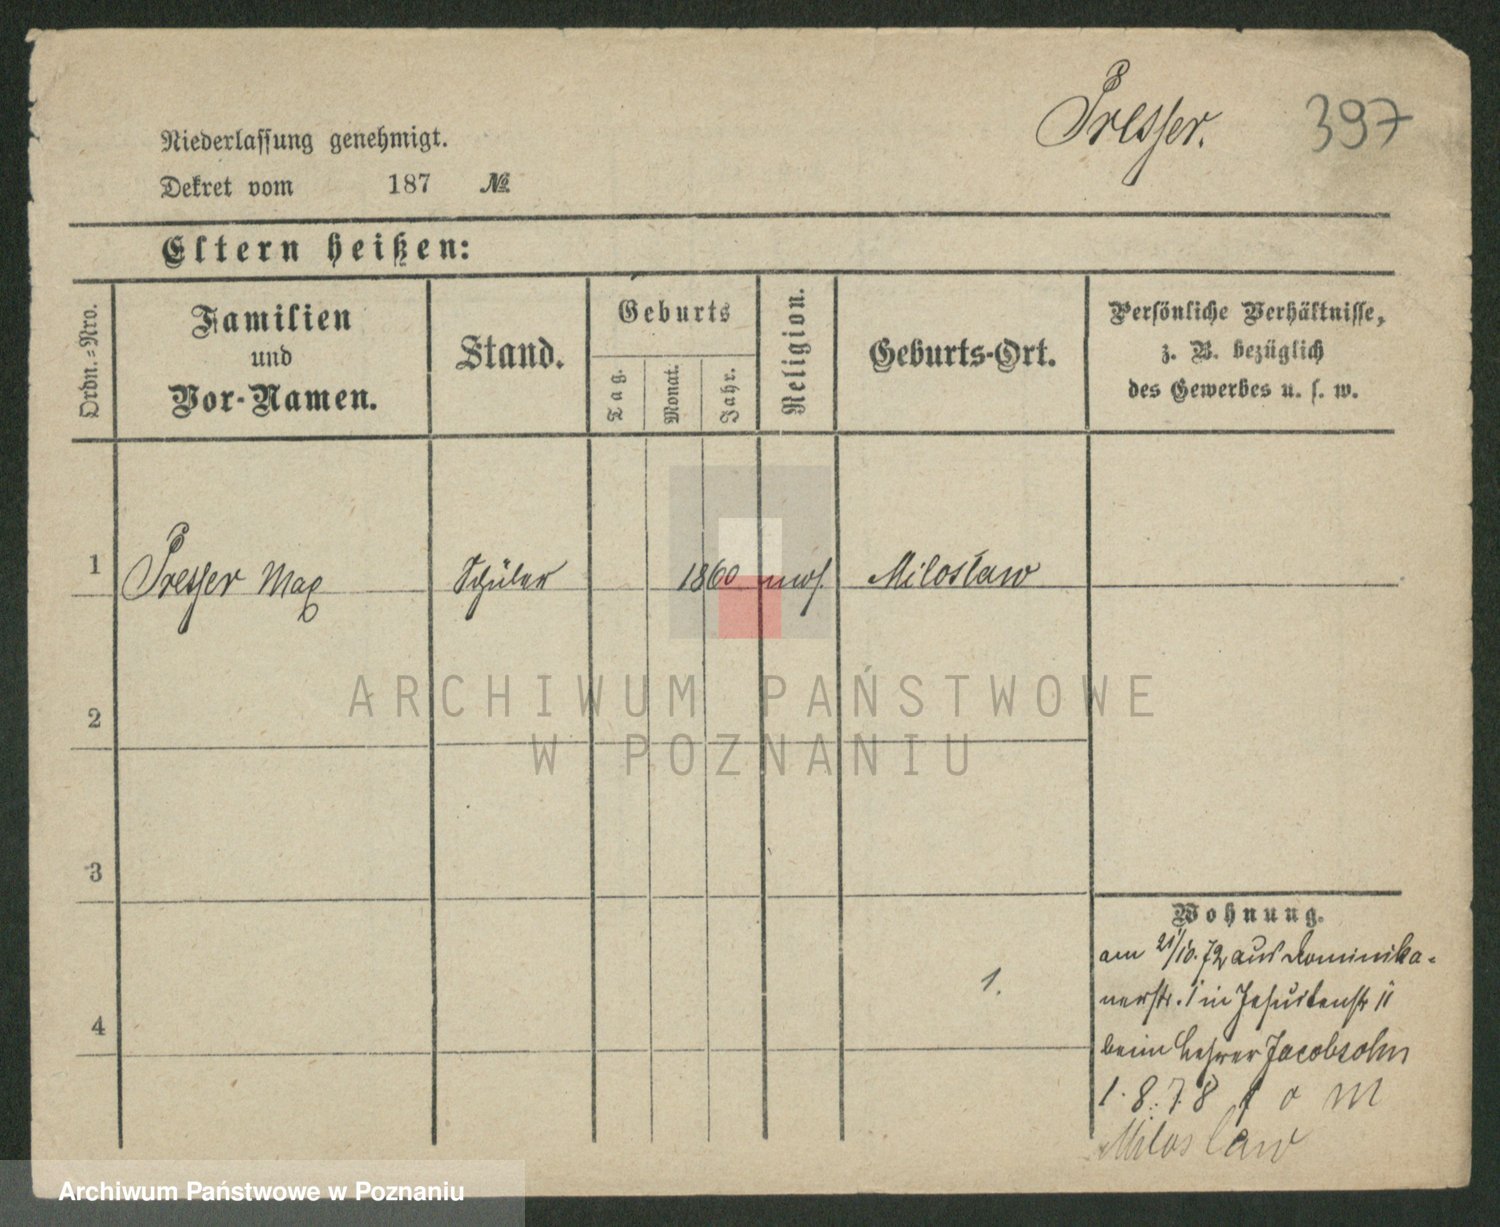 Presser.
397
Niederlassung genehmigt.
Dekret vom 187 №
Eltern heißen:
Ordn.-Nro.
Familien
und
Vor-Namen.
Stand.
Geburts
Tag.
Monat.
Jahr.
Religion.
Geburts-Ort.
Persönliche Verhältnisse,
z. B. bezüglich
des Gewerbes u. s. w.
1 Presser Max Schüler 1860 mos. Miloslaw
ARCHIWUM PAŃSTWOWE
W POZNANIU
2
3
4
1.
Wohnung.
am 21/10.72 aus Dominika-
nerstr. 1 in Jesuitenstr 11
beim Lehrer Jacobsohn
1.8.78
Miloslaw
Archiwum Państwowe w Poznaniu